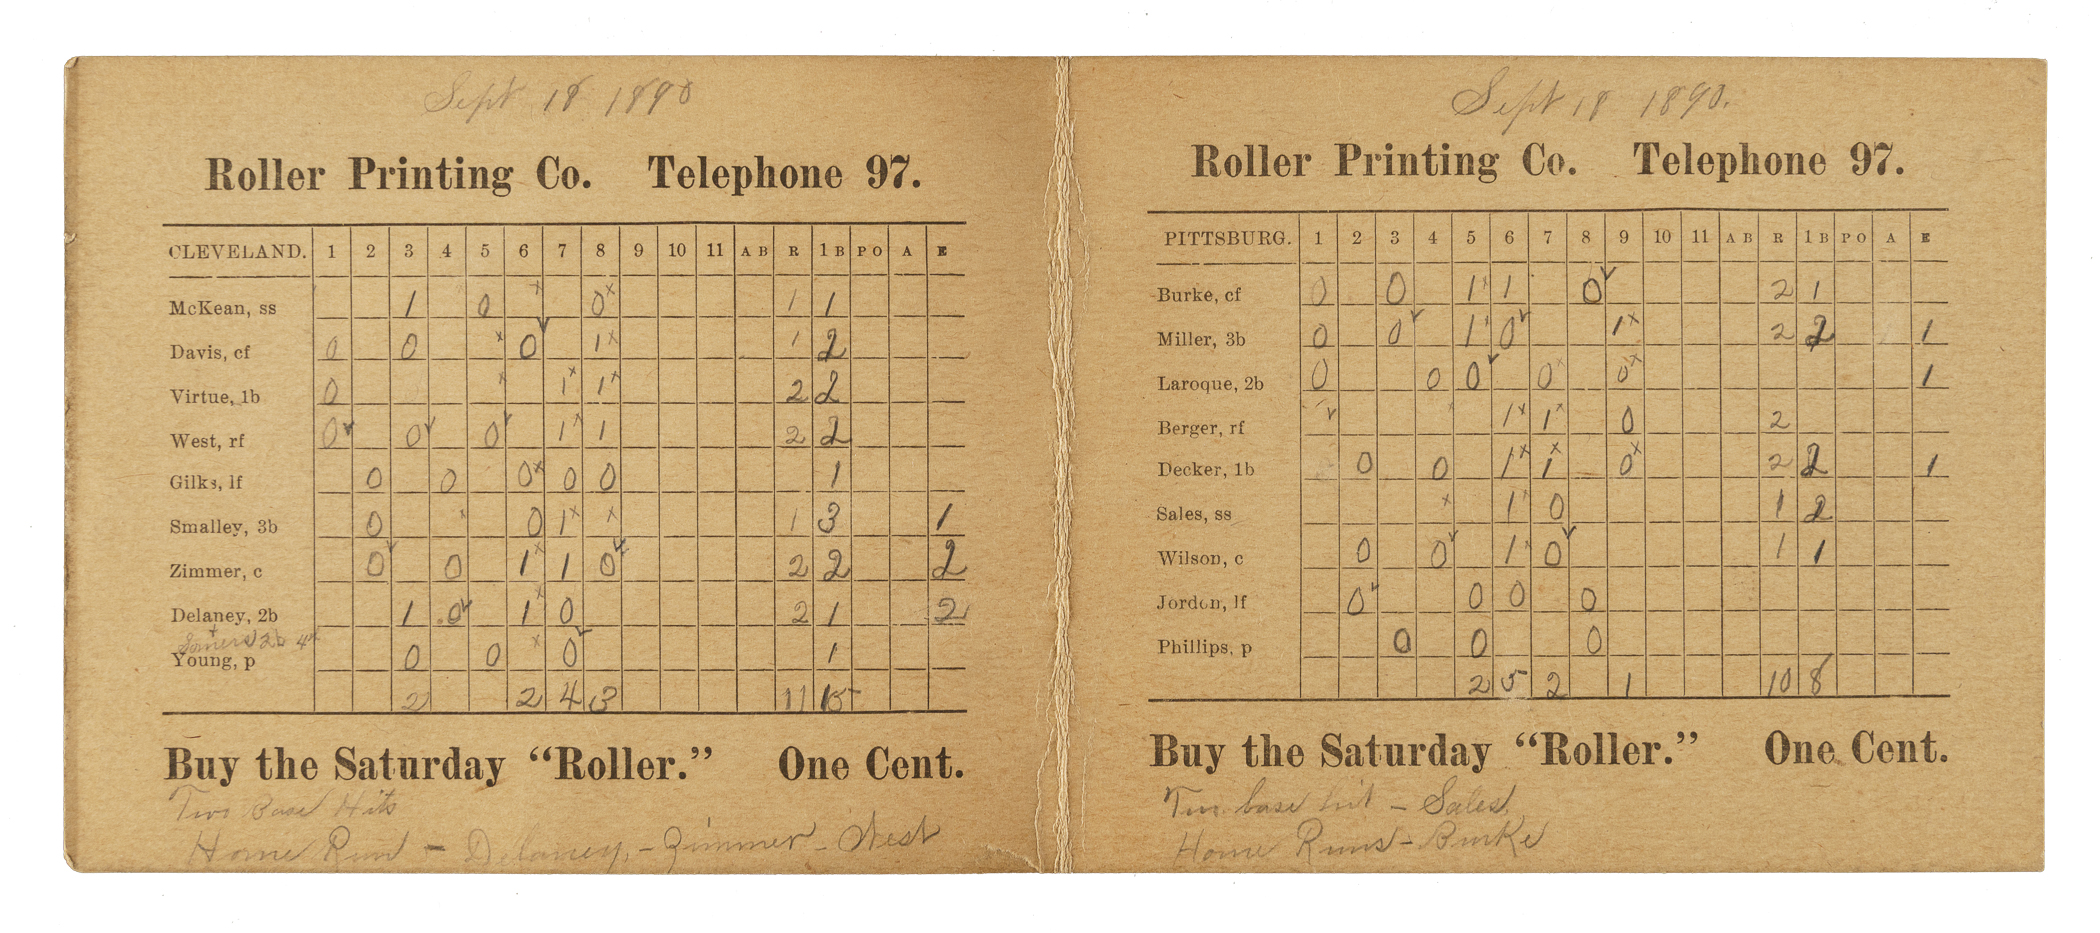 Sept 18 1890
Roller Printing Co. Telephone 97.
CLEVELAND. 1 2 3 4 5 6 7 8 9 10 11 AB R 1B PO A E
McKean, ss 1 0 0x 1 1
Davis, cf 0 0 x 0 1x 1 2
Virtue, 1b 0 x 1x 1x 2 2
West, rf 0 0 0 1x 1 2 2
Gilks, lf 0 0 0x 0 0 1
Smalley, 3b 0 x 0 1x x 1 3 1
Zimmer, c 0 0 1x 1 0 2 2 2
Delaney, 2b 1 0 1x 0 2 1 2
2b 4
Young, p 0 0 x 0 1
2 2 4 3 11 15
Buy the Saturday “Roller.” One Cent.
Two Base Hits
Home Run – Delaney – Zimmer – West
Sept 18 1890.
Roller Printing Co. Telephone 97.
PITTSBURG. 1 2 3 4 5 6 7 8 9 10 11 AB R 1B PO A E
Burke, cf 0 0 1x 1 0 2 1
Miller, 3b 0 0 1x 0 1x 2 2 1
Laroque, 2b 0 0 0 0x 0x 1
Berger, rf x 1x 1x 0 2
Decker, 1b 0 0 1x 1x 0x 2 2 1
Sales, ss x 1x 0 1 2
Wilson, c 0 0 1x 0 1 1
Jordon, lf 0 0 0 0
Phillips, p 0 0 0
2 5 2 1 10 8
Buy the Saturday “Roller.” One Cent.
Two base hit – Sales
Home Runs – Burke